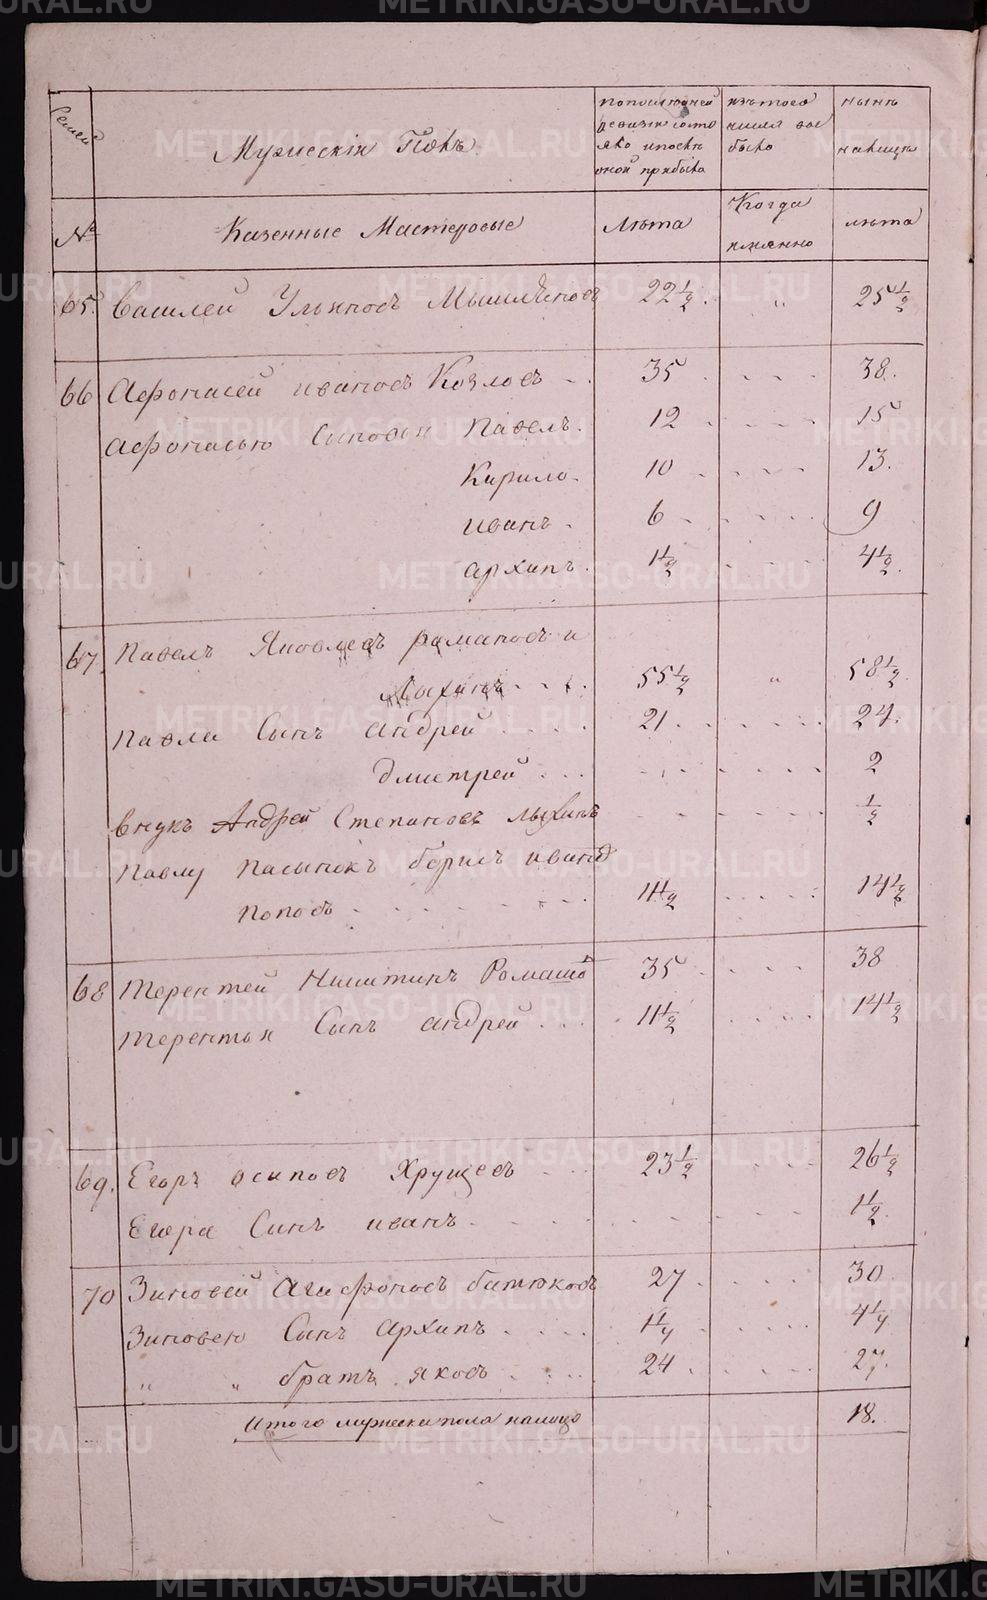 Семьи
Мужескiй Полъ.
По последней ревизiи состо яло и после оной прибыло
изъ того числа вы было
нынѣ на лицо
№
Казенные Мастеровые
Лѣта
Когда именно
лѣта
65. Василей Ульяновъ Мышляновъ 22 1/2 . „ 25 1/2
66 Афонасей ивановъ Козловъ 35 38.
Афонасью Сыновья Павелъ. 12 15
Кирило. 10 13.
иванъ. 6 9
архипъ. 1 1/2 4 1/2.
67 Павелъ Яковлевъ рамановъ и
Лыхинъ 55 1/2 „ 58 1/2.
Павла Сынъ андрей 21. 24.
дмитрей 2
внукъ Андрей Степановъ лыхинъ 1/2
Павлу пасынокъ борисъ иванов
поповъ 11 1/2 14 1/2
68 терентей Никитинъ Ромашо 35 38
терентья Сынъ андрей 11 1/2 14 1/2
69. Егоръ осиповъ Хрущевъ 23 1/2 26 1/2
Егора Сынъ иванъ. 1 1/2.
70 Зиновей Агафоновъ батюковъ 27 30
Зиновею Сынъ Архипъ 1 1/4 4 1/4
„ „ братъ яковъ 24 27.
Итого мужеска пола налицо 18.
METRIKI.GASO-URAL.RU